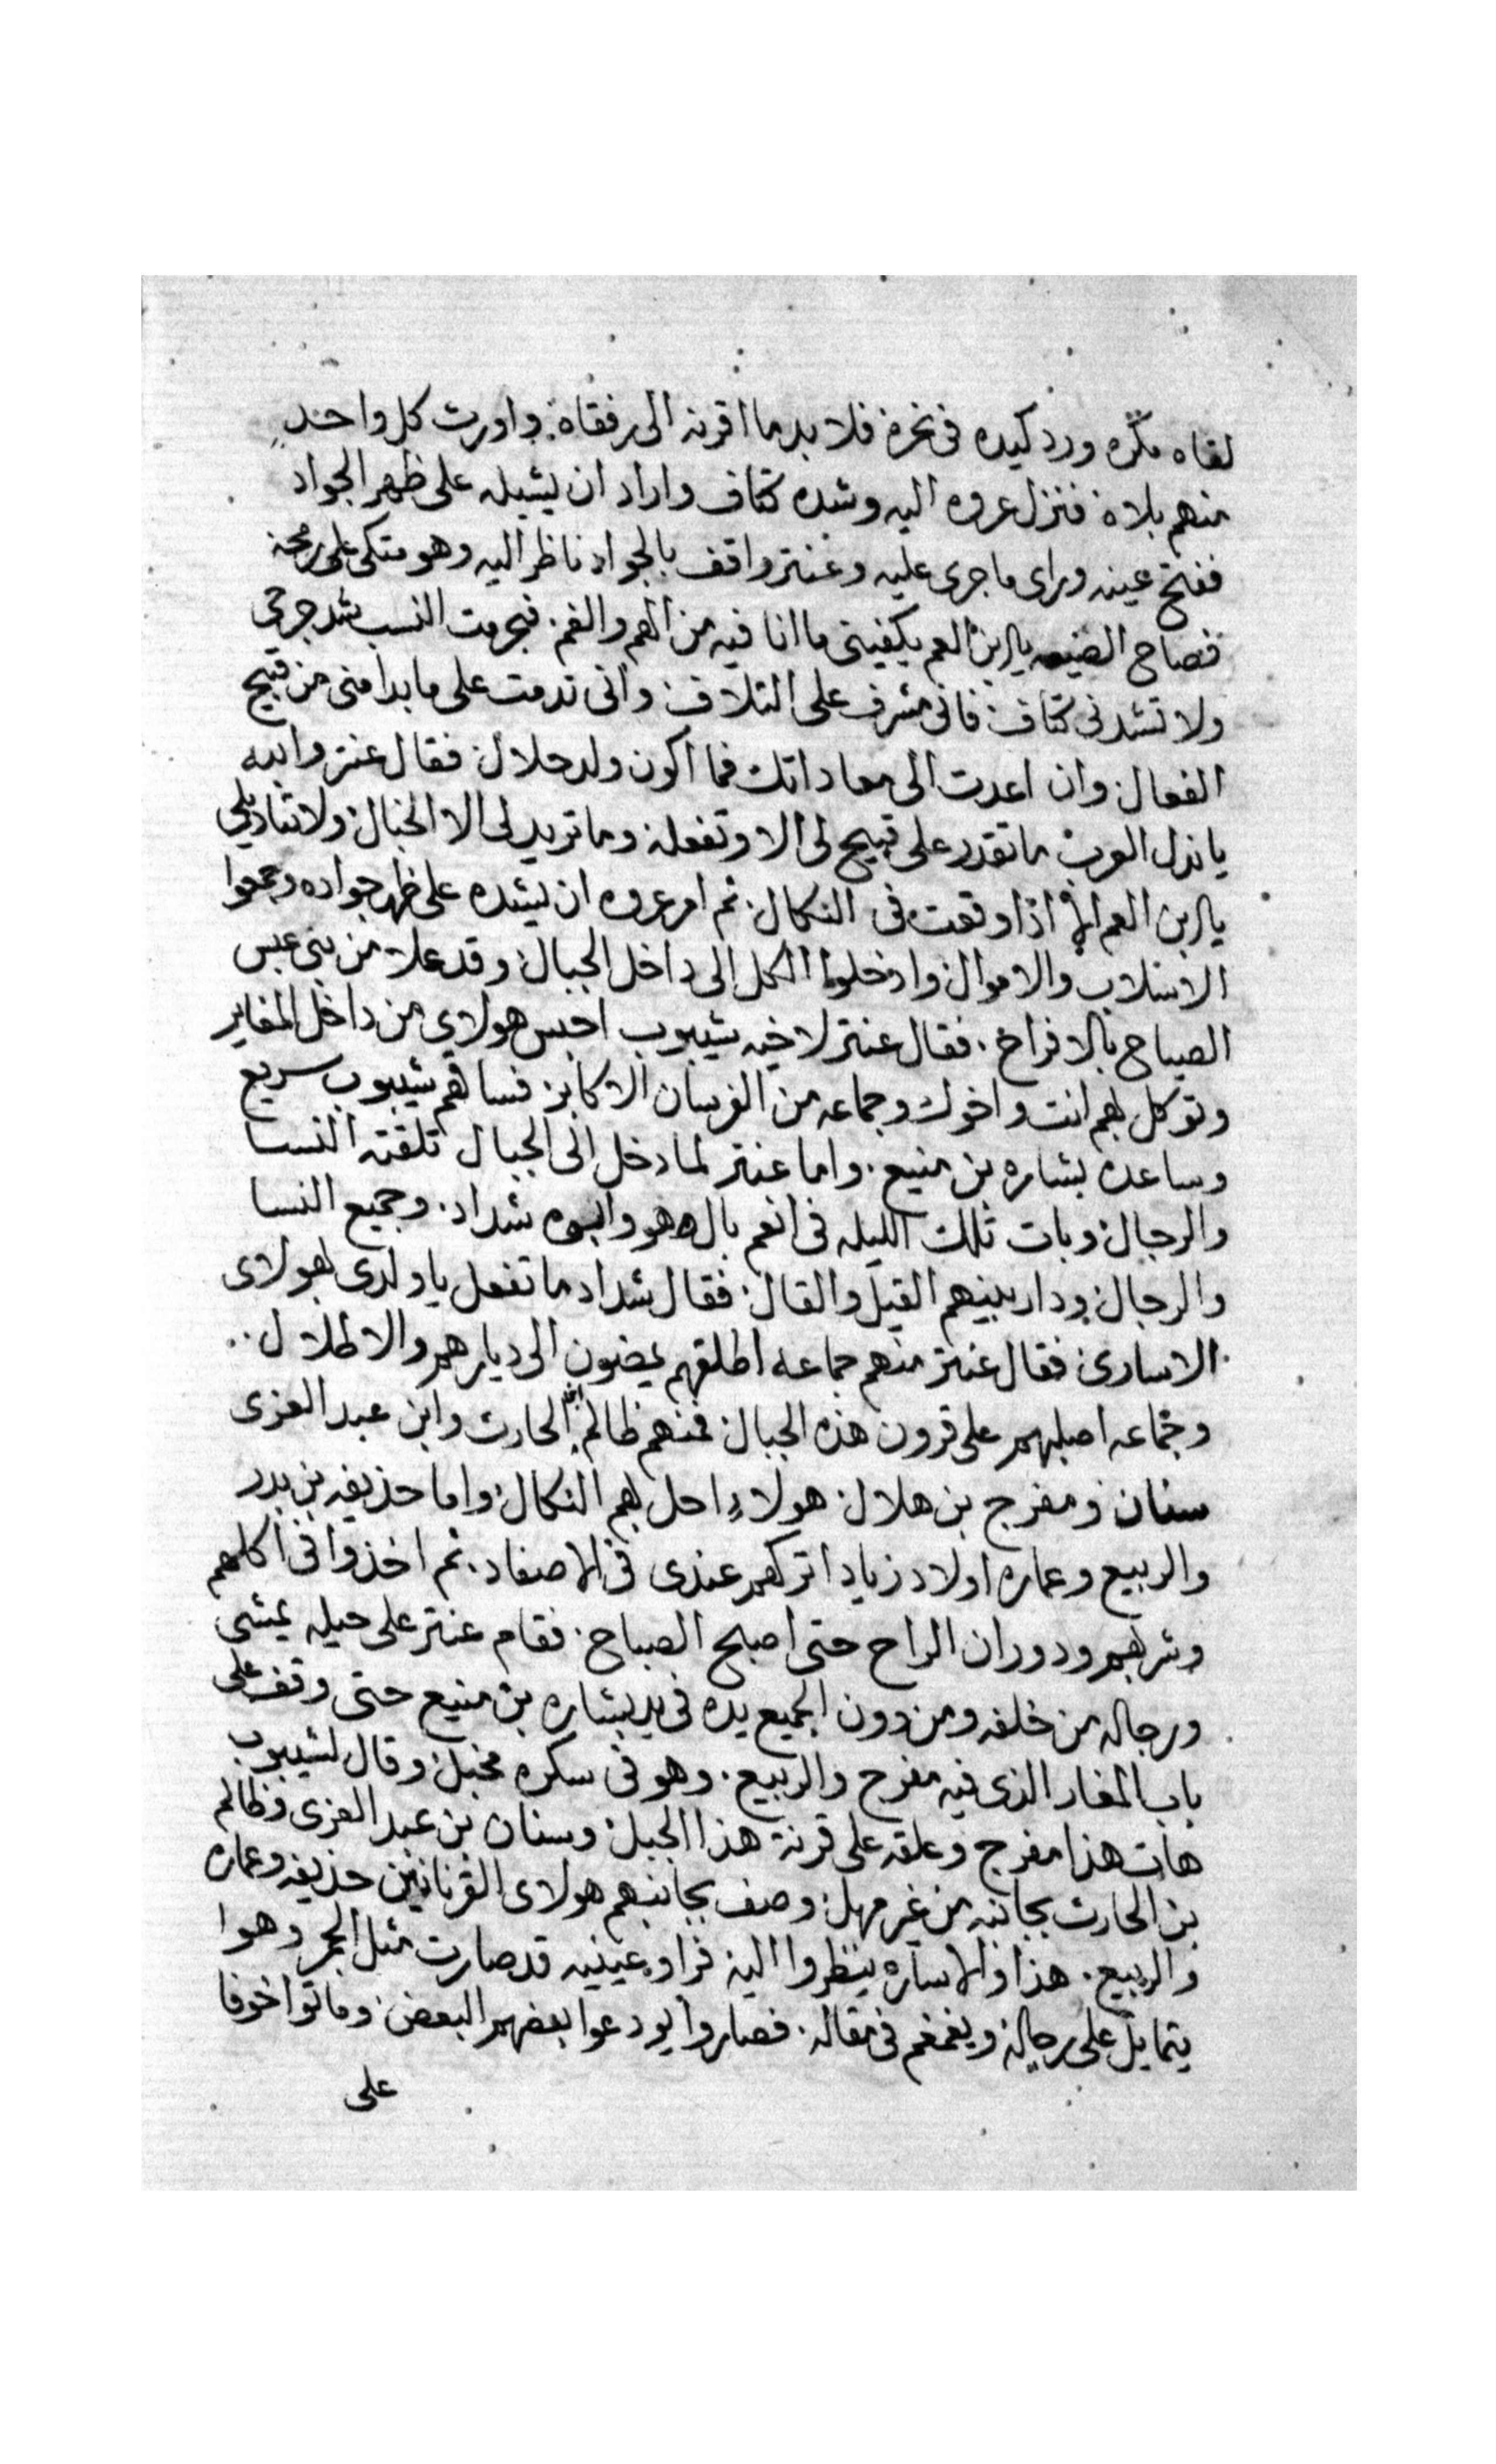 لقاه مكره ورد كيده فى نحره فلا بد ما اقرنه الى رفقاه. واورث كل واحد
منهم بلاه فنزل عروه اليه وشده كتاف واراد ان يشيله على ظهر الجواد
ففتح عينه وراى ما جرى عليه وعنتر واقف بالجواد ناظر اليه وهو متكى على رمحه
فصاح يابن العم يكفينى ما انا فيه من الهم والغم. فبحرمت النسب شد جرحى
ولا تشدنى كتاف فانى مشرف على التلاف وانى ندمت على ما بدا منى من قبيح
الفعال وان اعدت الى معاداتك فما اكون ولد حلال فقال عنتر والله
يا نذل العرب ما تقدر على قبيح لى الا وتفعله وما تريد لى الا الخبال ولا تنادينى
يابن العم الا اذا وقعت فى النكال. ثم امر عروه ان يشده على ظهر جواده وجمعوا
الاسلاب والاموال وادخلوا الكل الى داخل الجبال وقد علا من بنى عبس
الصياح بالافراح. فقال عنتر لاخيه شيبوب احبس هولاى من داخل المغاير
وتوكل بهم انت واخوك وجماعه من الفرسان الاكابر فساقهم شيبوب سريع
وساعده بشاره بن منيع. واما عنتر لما دخل الى الجبال تلقته النسا
والرجال وبات تلك الليله فى انعم بال هو وابوه شداد. وجميع النسا
والرجال ودار بينهم القيل والقال فقال شداد ما تفعل يا ولدى بهولاى
الاسارى فقال عنتر منهم جماعه اطلقهم يمضون الى ديارهم والاطلال..
وجماعه اصلبهم على قرون هذه الجبال فمنهم ظالم ابن الحارث وابن عبد العزى
سنان ومفرج بن هلال هولاء احل بهم النكال واما حذيفه بن بدر
والربيع وعماره اولاد زياد اتركهم عندى فى الاصفاد. ثم اخذوا فى اكلهم
وشربهم ودوران الراح حتى اصبح الصباح. فقام عنتر على حيله يمشى
ورجاله من خلفه ومن دون الجميع يده فى يد بشاره بن منيع حتى وقف على
باب المغار الذى فيه مفرج والربيع. وهو فى سكره مخبل وقال لشيبوب
هات هذا مفرج وعلقه على قرنة هذا الجبل وسنان بن عبد العزى وظالم
بن الحارث بجانبه من غير مهل وصف بجانبهم هولاى القرنانين حذيفه وعماره
والربيع. هذا والاساره ينظروا اليه فراو عينيه قد صارت مثل الجمر وهوا
يتمايل على رجاله ويغمغم فى مقاله. فصاروا يودعوا بعضهم البعض وماتوا خوفا
على